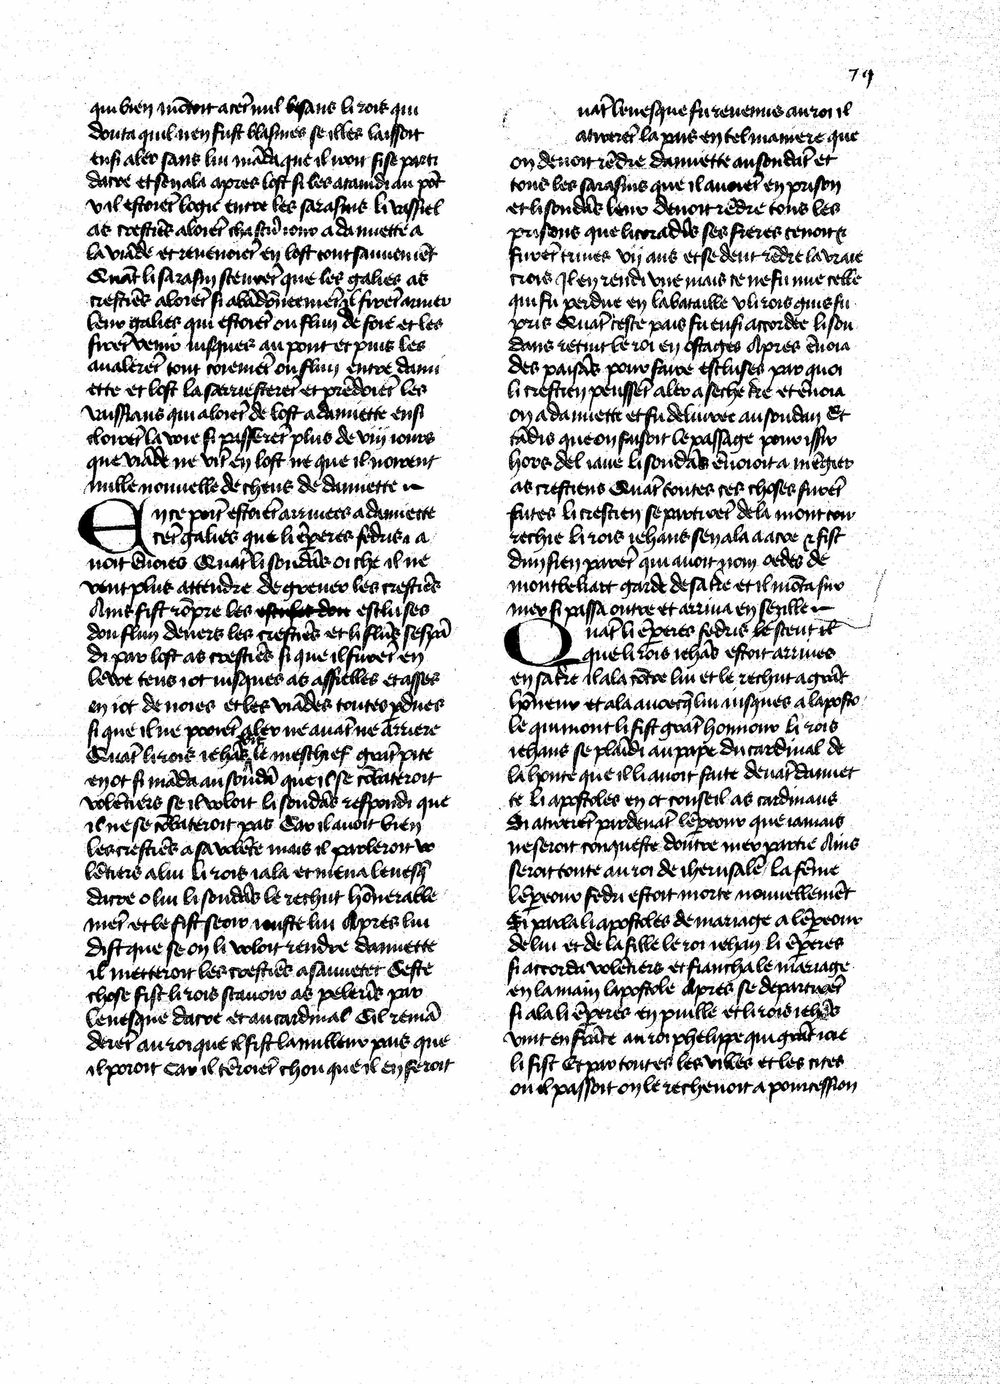 79
qui bien mōtoit a cent mil besans li rois qui
douta quil nen fust blasmes se il les laissoit
ensi aler sans lui māda que il iroit si se parti
dacre et sen ala apres lost si les ataindi au pōt
v il estoiēt logie entre les sarasins li vaissiel
as crestiēs aloiēt chascū iour a damiette a
la viāde et reuenoiēt en lost tout sauuemēt
Quāt li sarasin sceurēt que les galies as
crestiēs aloiēt si abādōneemēt il firēt armer
leur galies qui estoiēt ou flun de foie et les
firēt venir iusques au pont et puis les
aualerēt tout coiemēt ou flun entre dami
ette et lost la sarriesterēt et prēdoiēt les
vaissiaus qui aloiēt de lost a damiette ensi
cloirēt la voie si passerēt plus de viij iours
que viāde ne vīt en lost ne que il noirent
nulle nouuelle de cheus de damiette
En ce poīt estoiēt arriuees a damiette
cēt galies que li ēperes fedris i a
uoit ēuoies Quāt li sondās oi che il ne
veut plus attendre de greuer les crestiēs
Ains fist rōpre les escluses
dou flun deuers les crestiēs et li flūs sespā
di par lost as crestiēs si que il furēt en
lewe teus i ot iusques as assielles et asses
en iot de noies et les viādes toutes pdues
si que il ne pooiēt aler ne auāt ne arriere
Quāt li rois iehās vit le meschief grāt pite
en ot si māda au soudā que il se cōbateroit
volētiers se il voloit li sondās respondi que
il ne se cōbateroit pas Car il auoit bien
les crestiēs a sa volēte mais il parleroit vo
lētiers a lui li rois i ala et mena leuesq̄
dacre o lui li sondās le rechut hōnerable
mēt et le fist seoir iouste lui Apres lui
dist que se on li voloit rendre damiette
il metteroit les crestiēs a sauuetet Ceste
chose fist li rois scauoir as pelerīs par
leuesque dacre et au cardinal Cil remā
derēt au roi que il fist la milleur pais que
il poroit Car il tēroiēt chou que il en feroit
uāt leuesque fu reuenus au roi il
atirerēt la pais en tel maniere que
on deuoit rēdre damiette au sondāt et
tous les sarasins que il auoiēt en prison
et li sondās leur deuoit rēdre tous les
prisons que li coradis ses freres tenoit &
furēt triues vij ans et se deut rēdre la vraie
crois Il en rendi vne mais ce ne fu mie celle
qui fu perdue en la bataille v li rois guis fu
pris Quāt ceste pais fu ensi accordee li son
dans retint le roi en ostages Apres ēuoia
des paisās pour faire escluses par quoi
li crestien peussēt aler a seche tre et ēuoia
on a damiette et fu deliuree au soudan Et
tādis que on faisoit le passage pour issir
hors del iaue li sondās ēuoioit a mēgier
as crestiens Quāt toutes ces choses furēt
faites li crestien se partirēt de la mont cou
rechie li rois iehans sen ala a acre & fist
dun sien parēt qui auoit nom oedes de
montbeliart garde de sa tre et il mōta sur
mer si passa outre et arriua en sezille
Quāt li ēperes fedris le sceut il
que li rois iehās estoit arriues
en sa tre il ala cōtre lui et le rechut a grāt
hōneur et ala auoecq̄ lui iusques a laposto
le qui mont li fist grāt honnour li rois
iehans se plaīdi au pape du cardinal de
la honte que il li auoit faite deuāt damiet
te li apostoles en ot conseil as cardinaus
Si atirerēt par deuāt lēpeour que iamais
ne seroit conqueste doutre mer partie Ains
seroit toute au roi de iherusalē La fēme
lēpeour fedri estoit morte nouuellemēt
Si parla li apostoles de mariage a lēpeour
de lui et de la fille le roi iehan li ēperes
si accorda volētiers et fiancha le mariage
en la main lapostole Apres se departirēt
si ala li ēperes en puille et li rois iehās
vint en frāce au roi phelippe qui grāt ioie
li fist Et par toutes les villes et les cites
ou il passoit on le recheuoit a pourcession